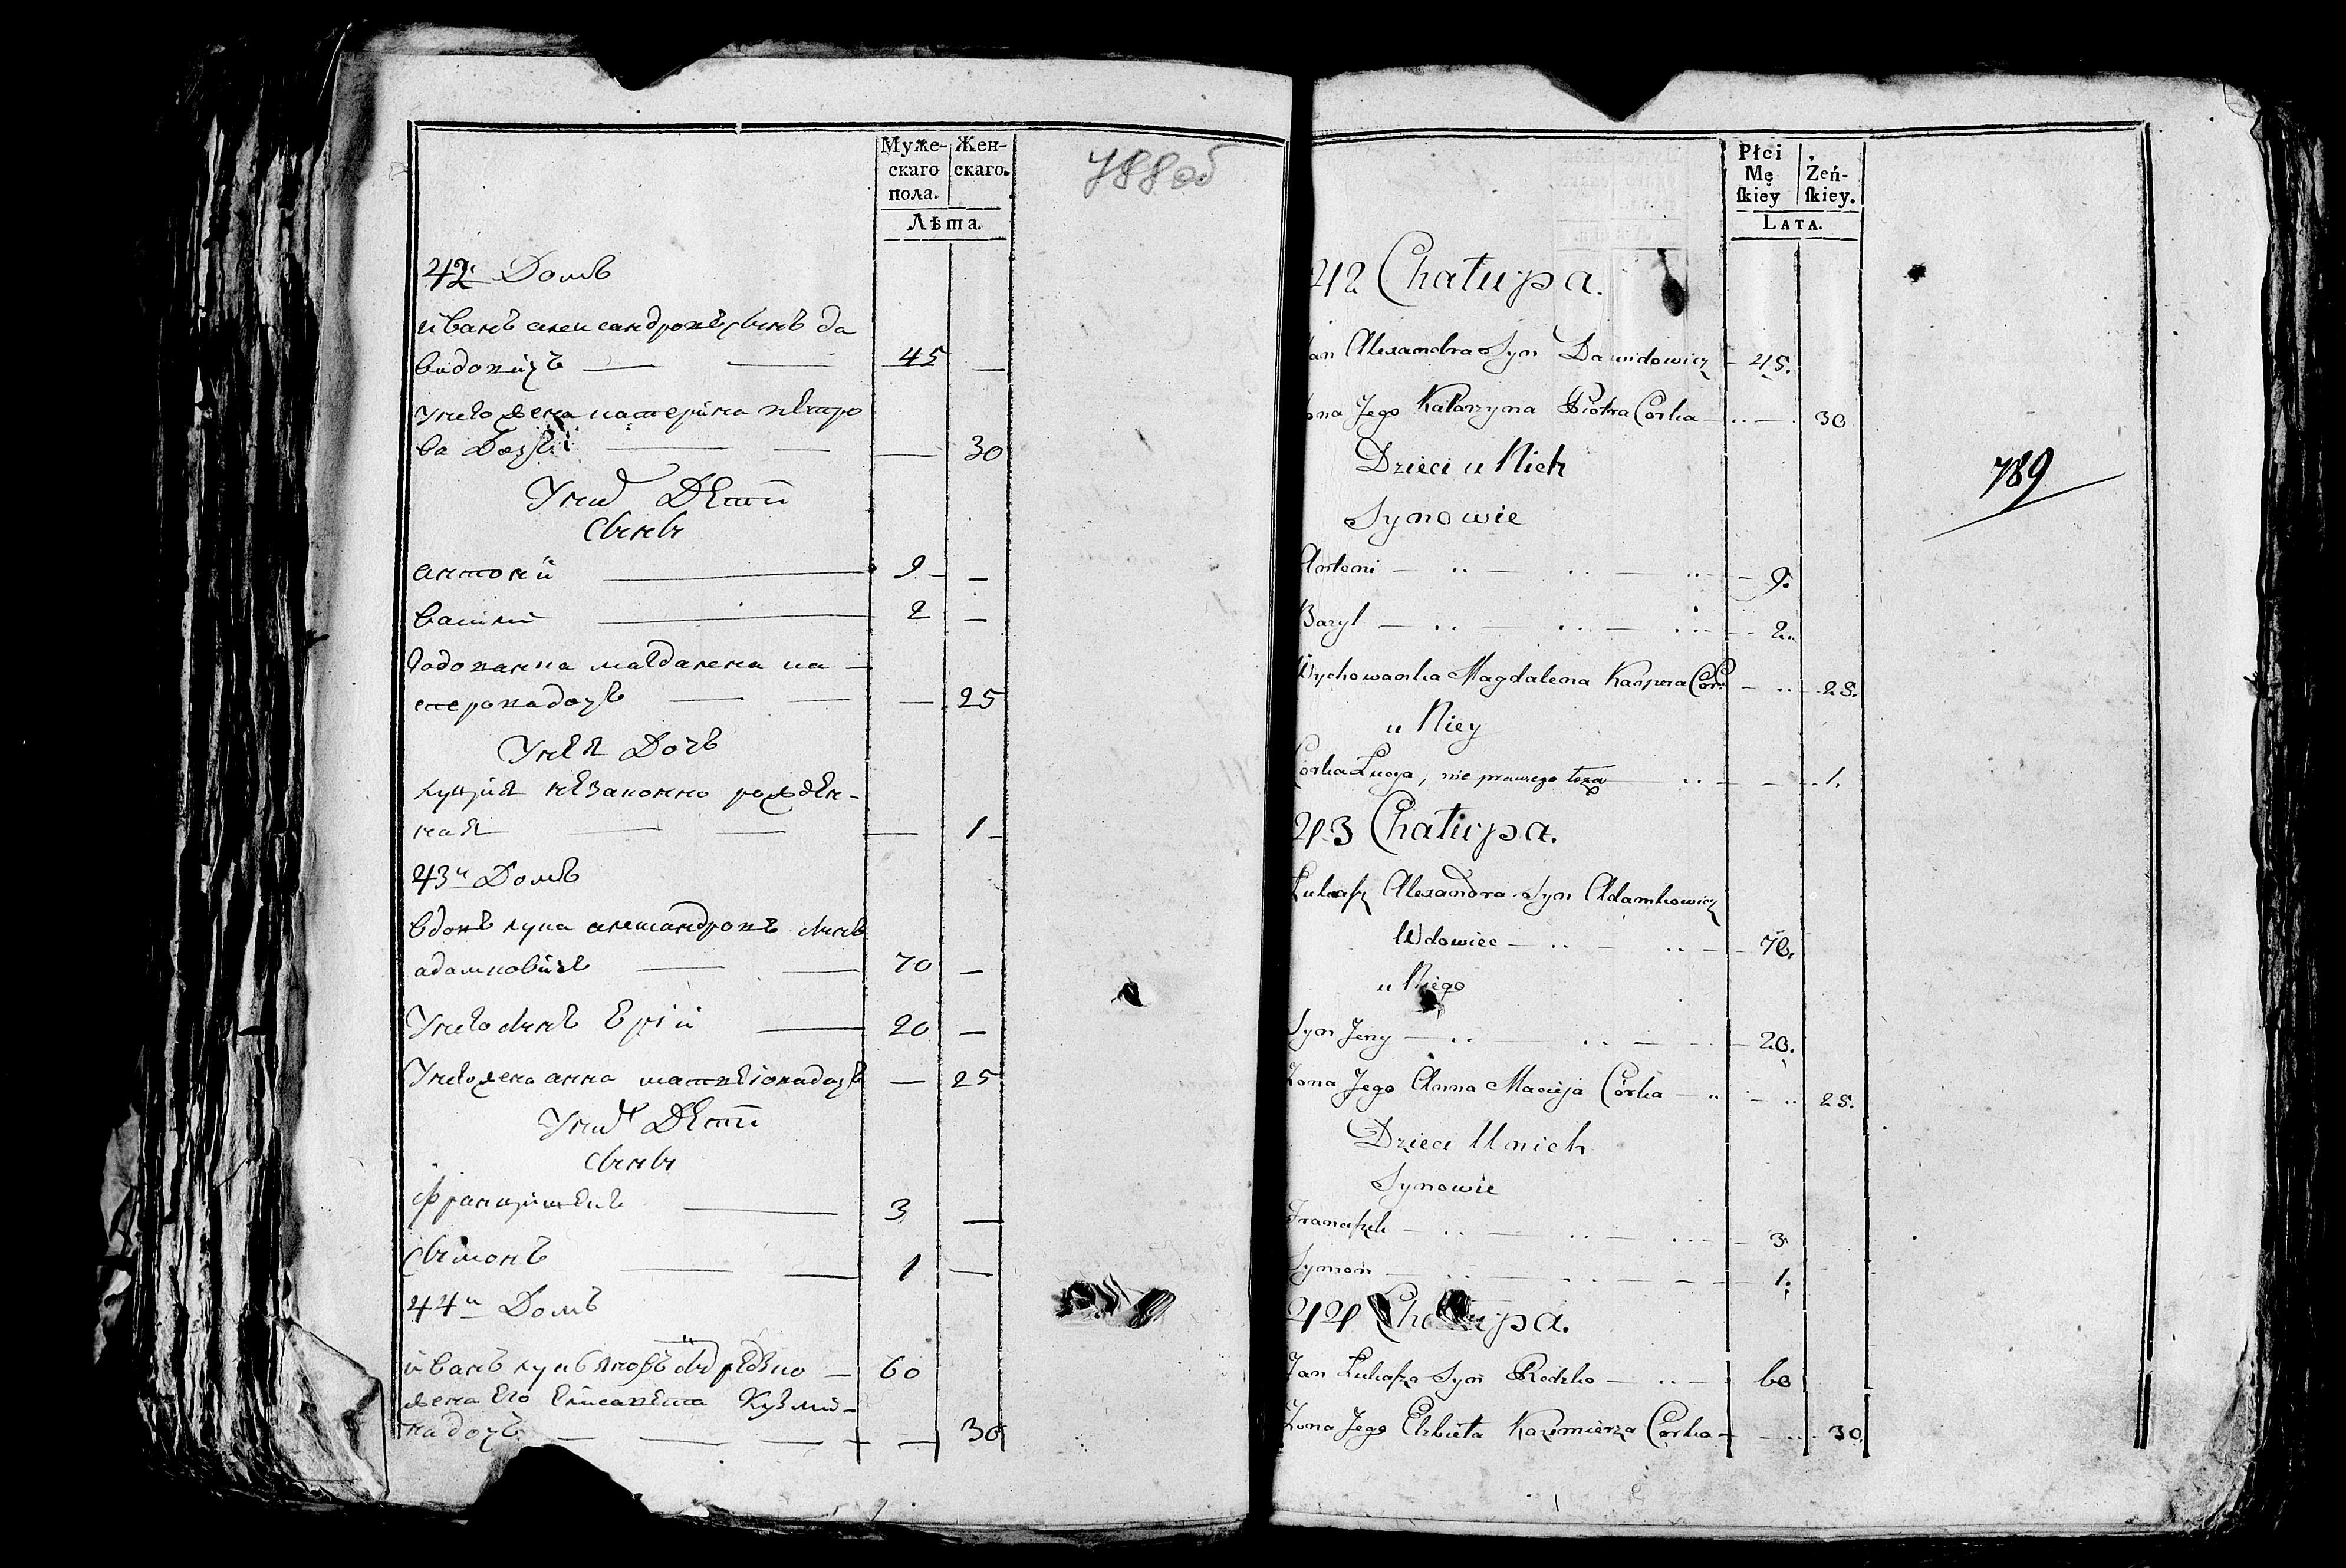 Муже-
скаго
пола.
Жен-
скаго.
Лѣта.
788 об
42й Домъ
иванъ александровъ сынъ да
видовичъ — — 45 —
Унего жена катерина петро
ва — — — 30
Уних Дети
сыны
антоній — 9 —
васили — 2 —
магдалена ка —
сперова дочь — — — 25
Унея Дочь
луция незаконно рожден-
ная — — — 1 —
43й Домъ
вдовъ лука александровъ сынъ
адамковичъ — — 70 —
Унего сынъ Ерій — 20 —
Унего жена анна матвеіова дочь — 25
Уних Дети
сыны
францишекъ — 3 —
сымонъ — — 1 —
44й Домъ
иванъ — 60
жена Его Елисавета Кузми-
на дочь — — — — 30
Płci
Mę
ſkiey
Żeń-
ſkiey.
LATA.
42 Chałupa.
Jan Alexandra Syn Dawidowicz — 45.
Żona Jego Katarzyna Piotra Corka — .. — . 30
Dzieci u Nich
Synowie
789
Antoni — .. — .. — .. — 9.
Bazyl — .. — .. — .. — 2..
Wychowanka Magdalena Kaspra Cor: — .. — 25.
u Niey
Corka Łucya, nie prawego łoża — .. — — . 1.
43 Chałupa.
Łukaſz Alexandra Syn Adamkowicz
Wdowiec — .. — .. — 70.
u Niego
Syn Jerzy — .. — .. — — 20.
Żona Jego Anna Macieja Córka — .. — .. 25.
Dzieci U nich
Synowie
Franciſzek — .. — .. — ... — 3
Symon — .. — .. — — — 1.
44 Chałupa.
Jan Łukaſza Syn Rodzko — .. — 60
Żona Jego Elzbieta Kazimierza Corka — — .. . 30